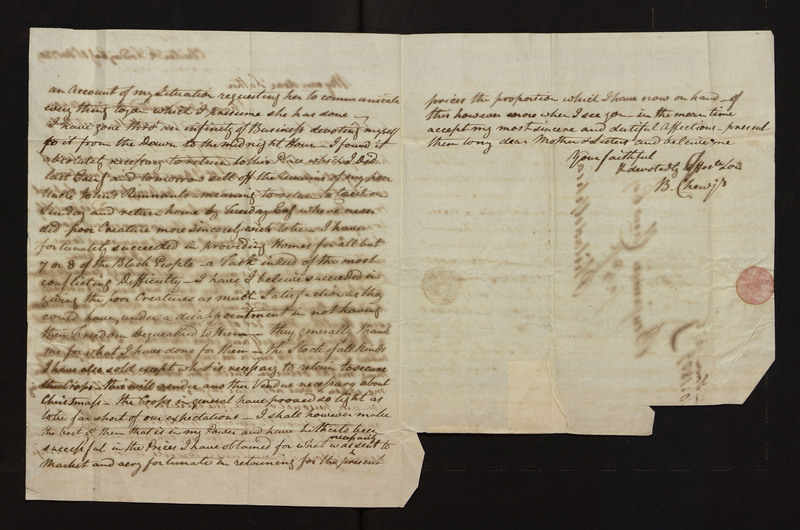 an Account of my Situation requesting her to communicate
every thing to you which I presume she has done —
I have gone thro' an infinity of Business devoting myself
to it from the Dawn to the midnight Hour — I found it
absolutely necessary to return to this Place which I did
last Eveg and tomorrow sell off the remains of my poor
Uncle John's Remnants — meaning to return to
Sunday and return home by Tuesday Eveg where never
did poor Creature more sincerely wish to be. I have
fortunately succeeded in providing Homes for all but
7 or 8 of the Black People — a Task indeed of the most
conflicting Difficulty — I have I believe succeeded in
giving the poor Creatures as much Satisfaction as they
could have, under a disappointment in not having
their Freedom bequeathed to them — they generally thank
me for what I have done for them — the Stock of all kinds
I have also sold except what is necessary to retain to secure
the Crops — this will render another Vendue necessary about
Christmass — the Crops in general have proved so light as
to be far short of our expectations — I shall however make
the best of them that is in my Power and have hitherto been
successful in the Prices I have obtained for what was necessarily sent to
Market and very fortunate in retaining for the present
prices the proportion which I have now on hand — of
this however more when I see you — in the mean time
accept my most sincere and dutiful Affections — present
them to my dear Mother & Sisters and believe me
Your faithful
& devotedly Affecte Son
B. Chew Jr